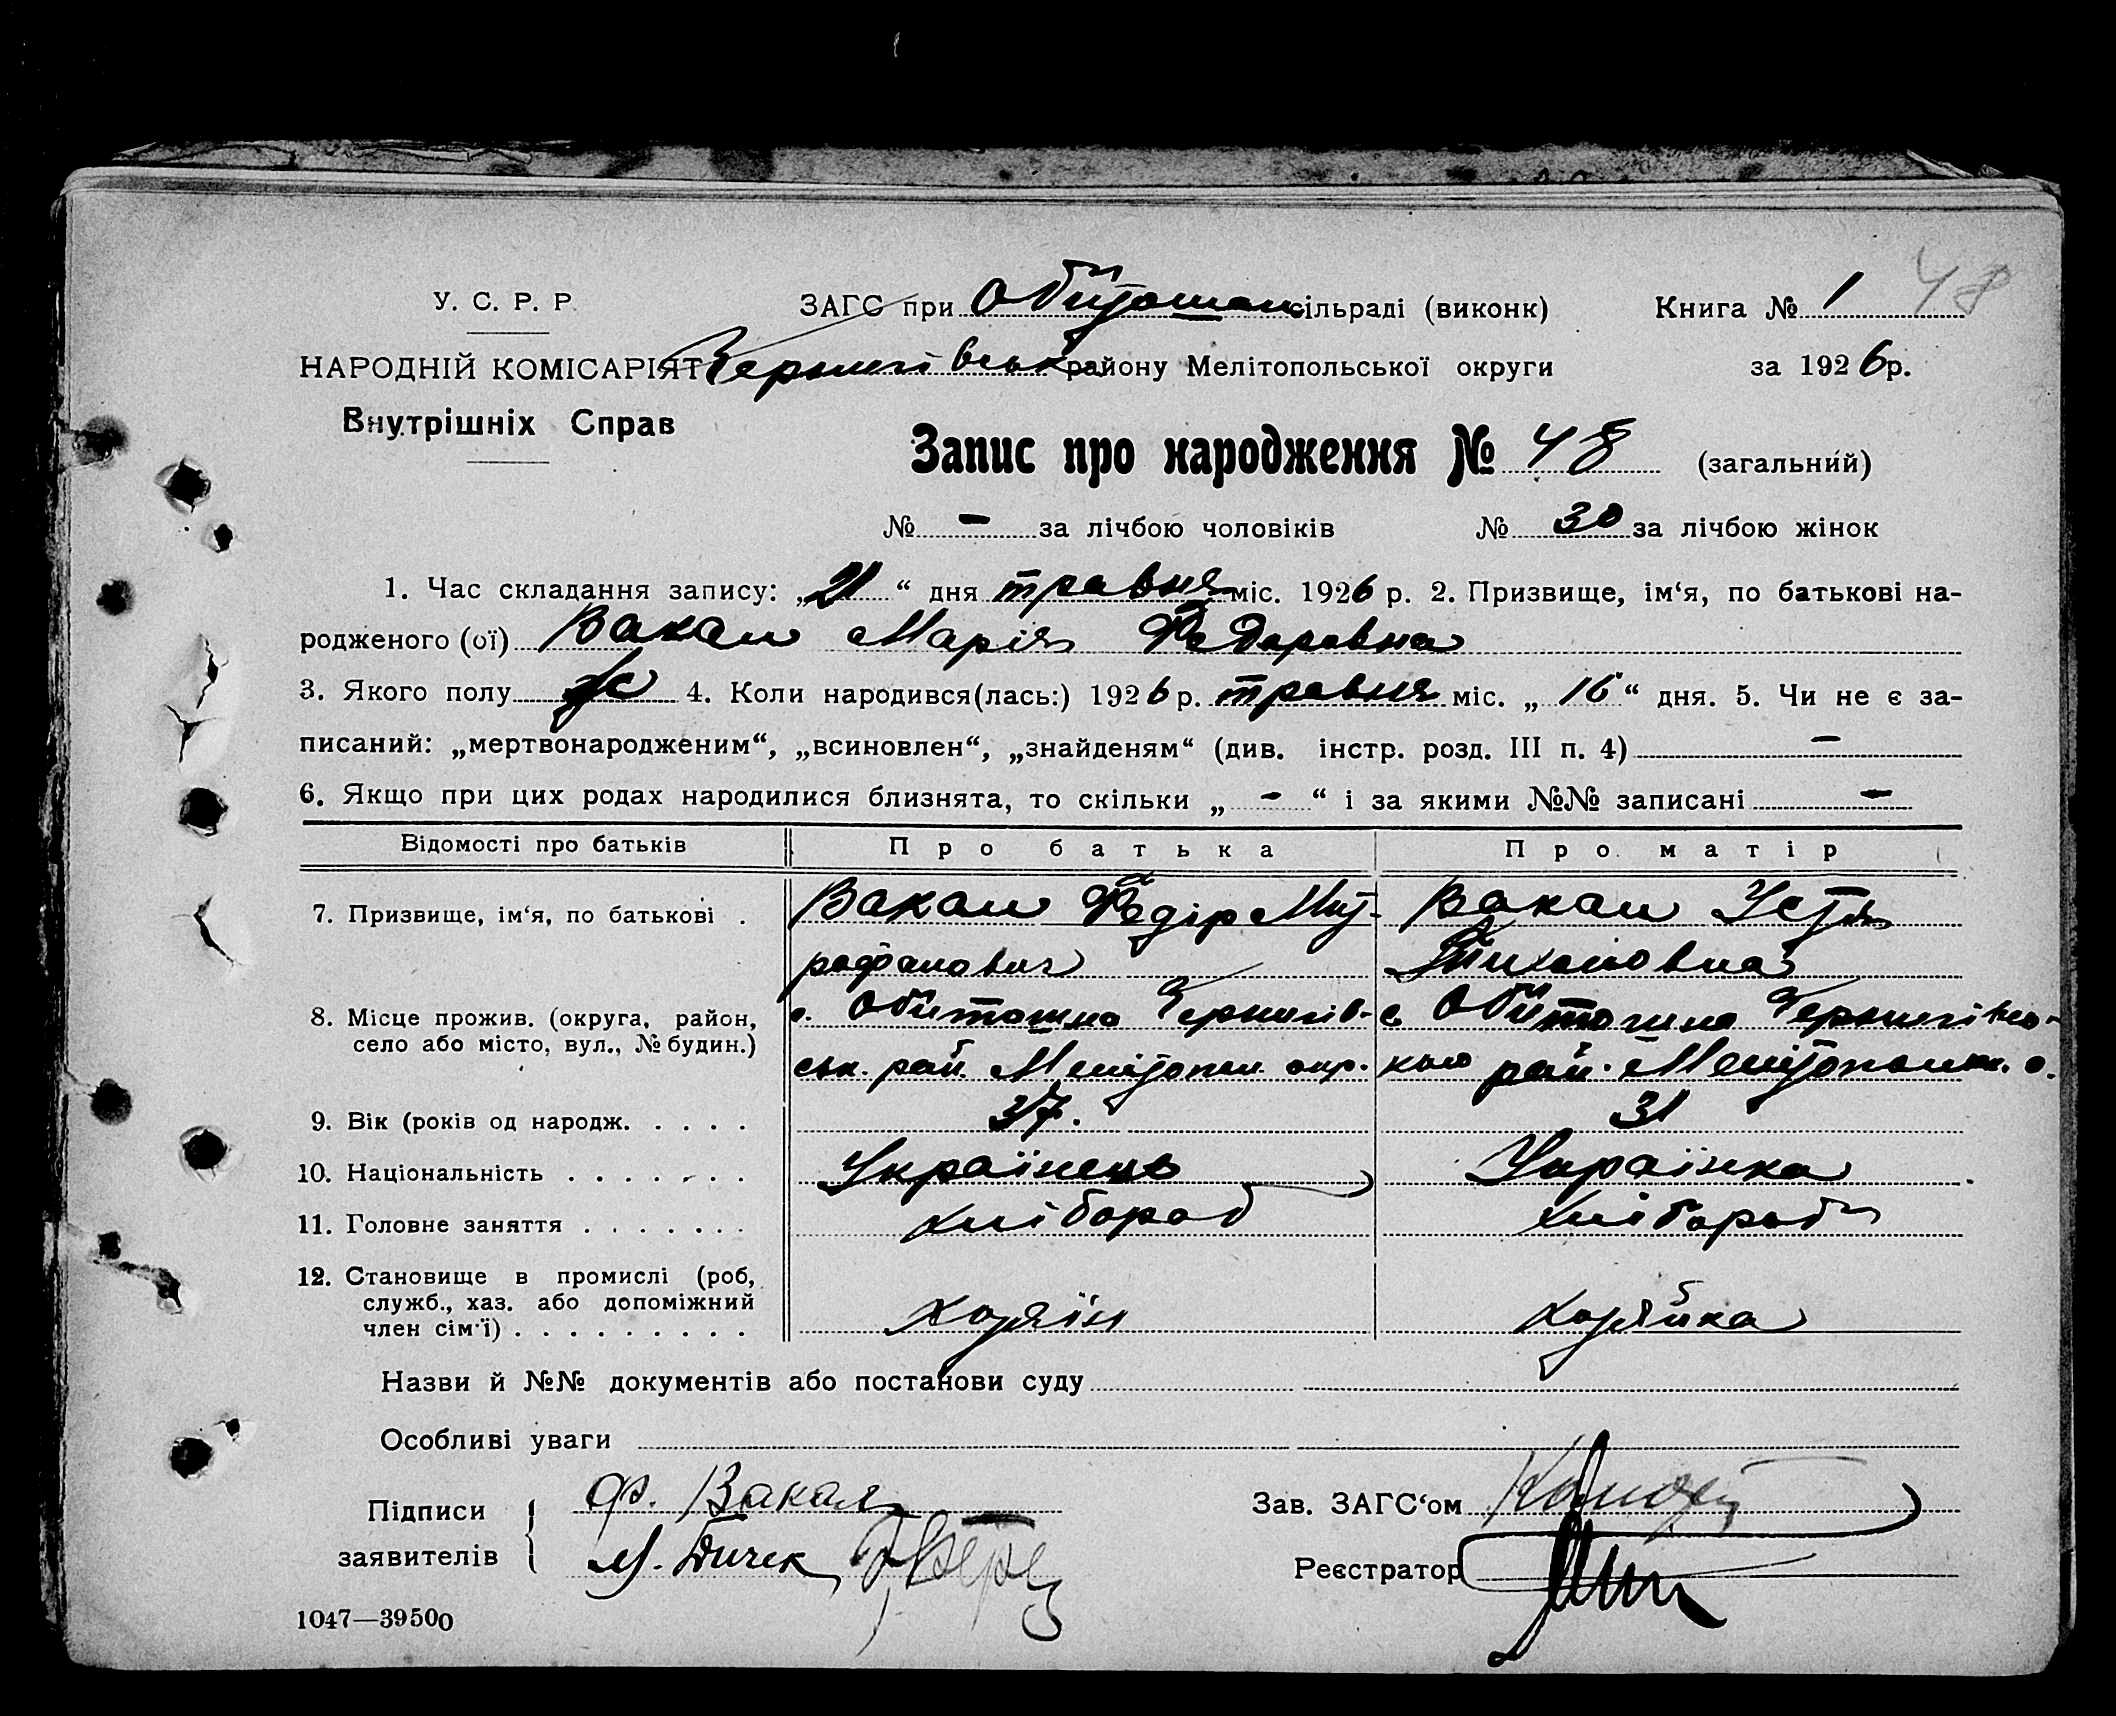 48
У. С. Р. Р. ЗАГС при Обиточан сільраді (виконк) Книга № 1
НАРОДНІЙ КОМІСАРІЯТ Чернигівськ району Мелітопольської округи за 1926 р.
Внутрішніх Справ
Запис про народження № 48 (загальний)
№ - за лічбою чоловіків № 30 за лічбою жінок
1. Час складання запису: „21“ дня травня міс. 1926 р. 2. Призвище, ім‘я, по батькові на-
родженого (ої) Вакал Марія Федоровна
3. Якого полу ж 4. Коли народився(лась:) 1926 р. травня міс. „16“ дня. 5. Чи не є за-
писаний: „мертвонародженим“, „всиновлен“, „знайденям“ (див. інстр. розд. III п. 4) -
6. Якщо при цих родах народилися близнята, то скільки „ - “ і за якими №№ записані -
Відомості про батьків Про батька Про матір
7. Призвище, ім‘я, по батькові . Вакал Федір Мит- Вакал Устя
рофанович Тихоновна
8. Місце прожив. (округа, район, с. Обиточна Чернигів- с Обиточна Чернигівсь-
село або місто, вул., № будин.) ськ. рай. Мелітопол. окр. кого рай. Мелітопольськ. о.
9. Вік (років од народж. . . . . 37. 31
10. Національність . . . . . . . Українець Українка
11. Головне заняття . . . . . . . хлібороб хлібороб
12. Становище в промислі (роб,
служб., хаз. або допоміжний хозяїн хозяйка
член сім‘ї) . . . . . . . . .
Назви й №№ документів або постанови суду
Особливі уваги
Підписи Ф. Вакал Зав. ЗАГС‘ом
заявителів М. Бичек Реєстратор
1047—39500